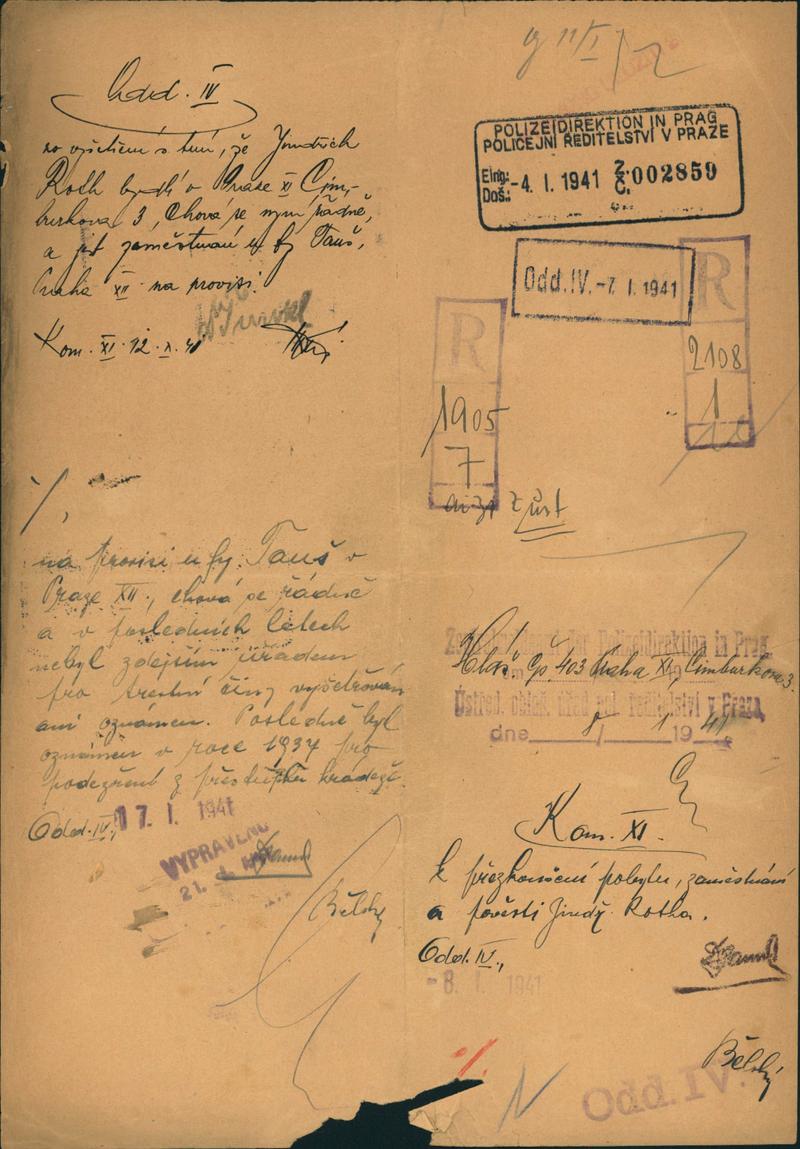 Odd. IV
po vyšetření s tím, že Jindřich
Roth bydlí v Praze XI Cim-
burkova 3, chová se nyní řádně,
a jest zaměstnán u fy Tauš,
Praha XII na provisi.
Kom. XI. 12. 41
na provisi u fy. Tauš v
Praze XII., chová se řádně
a v posledních letech
nebyl zdejším úřadem
pro trestní činy vyšetřován
ani oznámen. Posledně byl
oznámen v roce 1937 pro
podezření z přestupku krádeže.
Odd. IV., 17. I. 1941
VYPRAVENO
21. I.
Bělský
POLIZEIDIREKTION IN PRAG
POLICEJNÍ ŘEDITELSTVÍ V PRAZE
Eing.:
Doš.: -4. I. 1941 Z. Č. 002859
Odd. IV. -7. I. 1941
R
2108
1
R
1905
7
zůst
Polizeidirektion in Prag
Hlaš. čp. 403 Praha XI, Cimburkova 3.
Ústřed. ohlaš. úřad pol. ředitelství v Praze
dne 8 / 1 1941
Kom. XI.
k přezkoušení pobytu, zaměstnání
a pověsti Jindř. Rotha.
Odd. IV.,
-8. I. 1941
Bělský
Odd. IV.